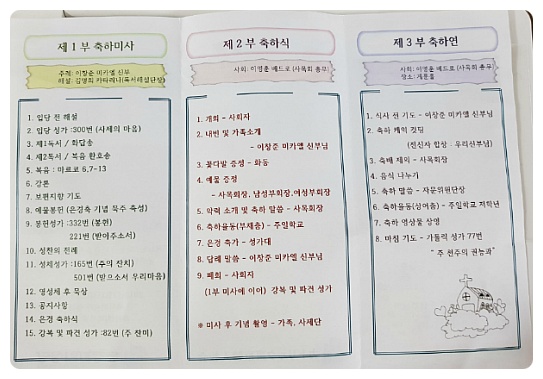 제 1 부 축하미사
주례: 이창준 미카엘 신부
해설: 김명희 카타리나(독서해설단장)
1. 입당 전 해설
2. 입당 성가 :300번 (사제의 마음)
3. 제1독서 / 화답송
4. 제2독서 / 복음 환호송
5. 복음 : 마르코 6,7-13
6. 강론
7. 보편지향 기도
8. 예물봉헌 (은경축 기념 묵주 축성)
9. 봉헌성가 :332번 (봉헌)
221번 (받아주소서)
10. 성찬의 전례
11. 성체성가 :165번 (주의 잔치)
501번 (받으소서 우리마음)
12. 영성체 후 묵상
13. 공지사항
14. 은경 축하식
15. 강복 및 파견 성가 :82번 (주 찬미)
제 2 부 축하식
사회: 이영훈 베드로 (사목회 총무)
1. 개회 - 사회자
2. 내빈 및 가족소개
- 이창준 미카엘 신부님
3. 꽃다발 증정 - 화동
4. 예물 증정
- 사목회장, 남성부회장,여성부회장
5. 약력 소개 및 축하 말씀 - 사목회장
6. 축하율동(부채춤) - 주일학교
7. 은경 축가 - 성가대
8. 답례 말씀 - 이창준 미카엘 신부님
9. 폐회 - 사회자
(1부 미사에 이어) 강복 및 파견 성가
※ 미사 후 기념 촬영 - 가족, 사제단
제 3 부 축하연
사회: 이영훈 베드로 (사목회 총무)
장소:
1. 식사 전 기도 - 이창준 미카엘 신부님
2. 축하 케익 컷팅
합창 : 우리신부님)
3. 축배 제의 - 사목회장
4. 음식 나누기
5. 축하 말씀 - 자문위원단장
6. 축하율동 - 주일학교 저학년
7. 축하 영상물 상영
8. 마침 기도 - 가톨릭 성가 77번
" 주 천주의 권능과"